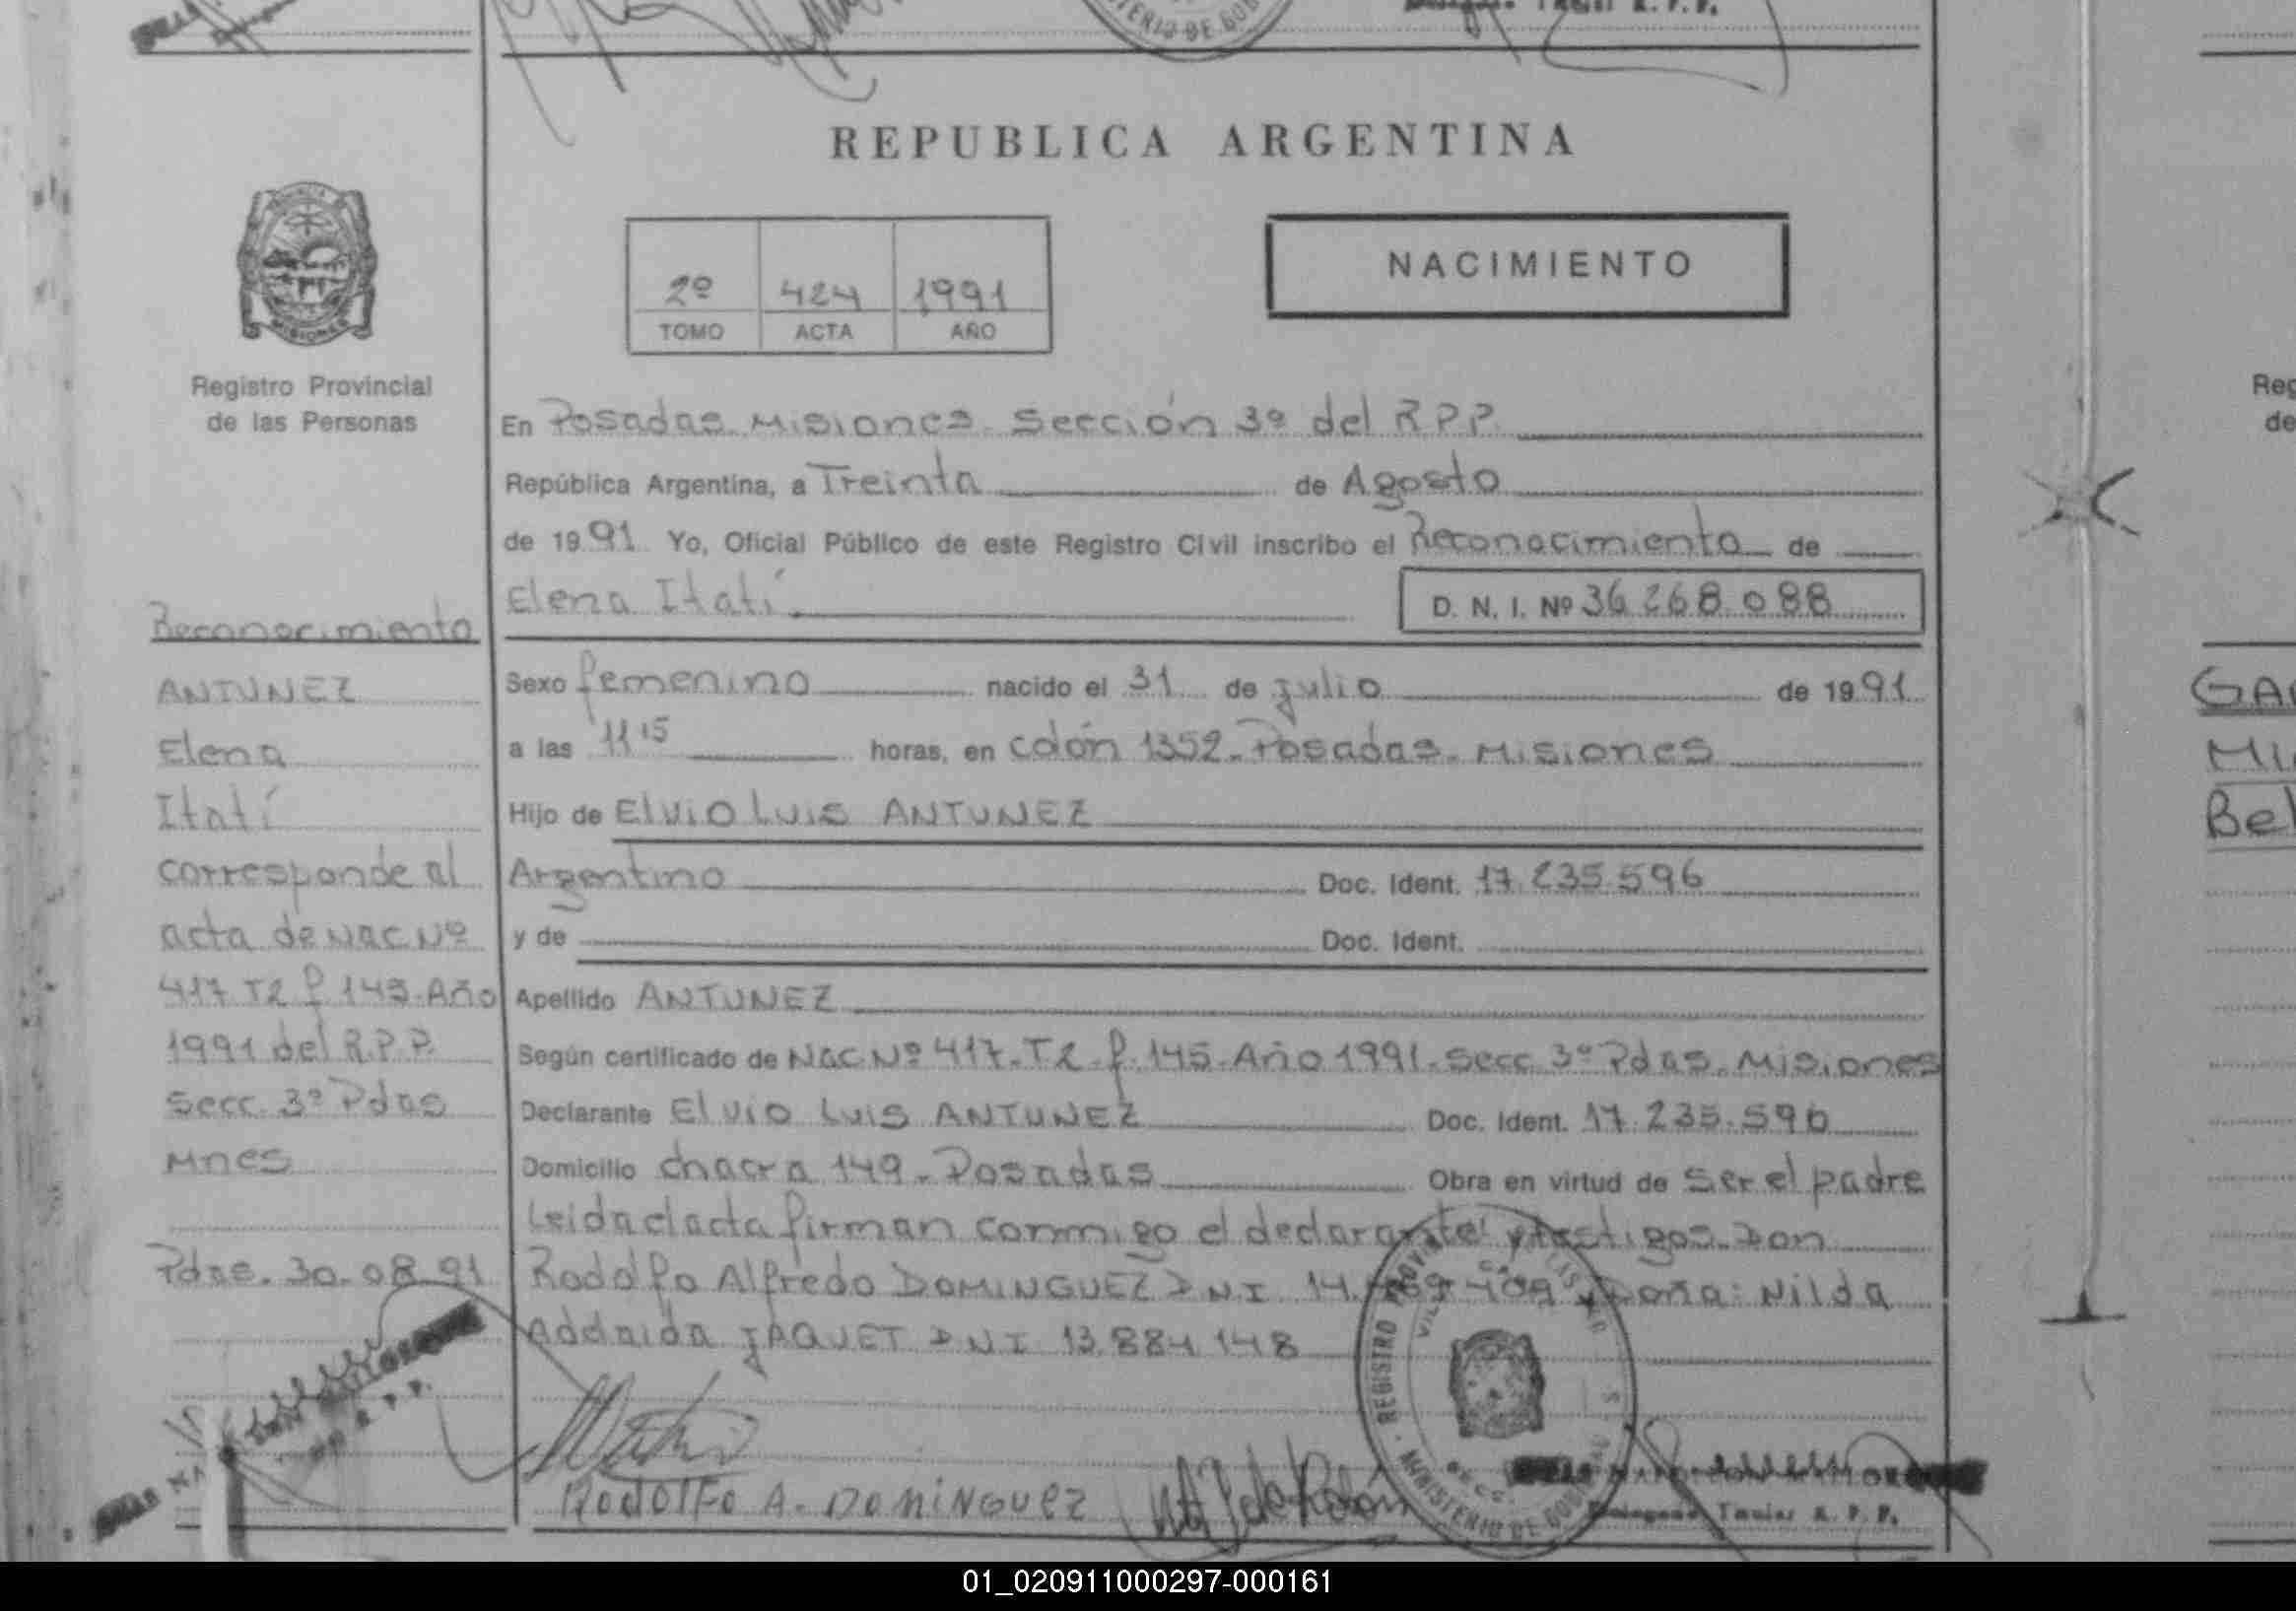 MINISTERIO DE GOB
R. P. P.
REPUBLICA ARGENTINA
2º 424 1991
TOMO ACTA AÑO
NACIMIENTO
MISIONES
Registro Provincial
de las Personas
En Posadas Misiones Sección 3º del R P P
República Argentina, a Treinta de Agosto
de 1991 Yo, Oficial Público de este Registro Civil inscribo el Reconocimiento de
Elena Itatí
D. N. I. Nº 36 268 088
Sexo femenino nacido el 31 de julio de 1991
a las 11 15 horas, en colón 1352 - Posadas - Misiones
Hijo de Elvio Luis ANTUNEZ
Argentino Doc. Ident. 17.235.596
y de Doc. Ident.
Apellido ANTUNEZ
Según certificado de Nac Nº 417 - T2 - f. 145 - Año 1991 - Secc 3º Pdas. Misiones
Declarante Elvio Luis ANTUNEZ Doc. Ident. 17.235.596
Domicilio chacra 149 - Posadas Obra en virtud de Ser el padre
Leida el acta firman conmigo el declarante y testigos Don
Rodolfo Alfredo DOMINGUEZ D N I 14. 409 y Doña: Nilda
Adelaida JAQUET D N I 13.884.148
Rodolfo A. DOMINGUEZ
REGISTRO
MINISTERIO DE GOB
R. P. P.
Reconocimiento
ANTUNEZ
Elena
Itatí
corresponde al
acta de Nac Nº
417 T2 f 145. Año
1991 del R.P.P.
Secc. 3º Pdas
Mnes
Pdas. 30-08-91
Reg
de
GA
Mi
Bel
01_020911000297-000161